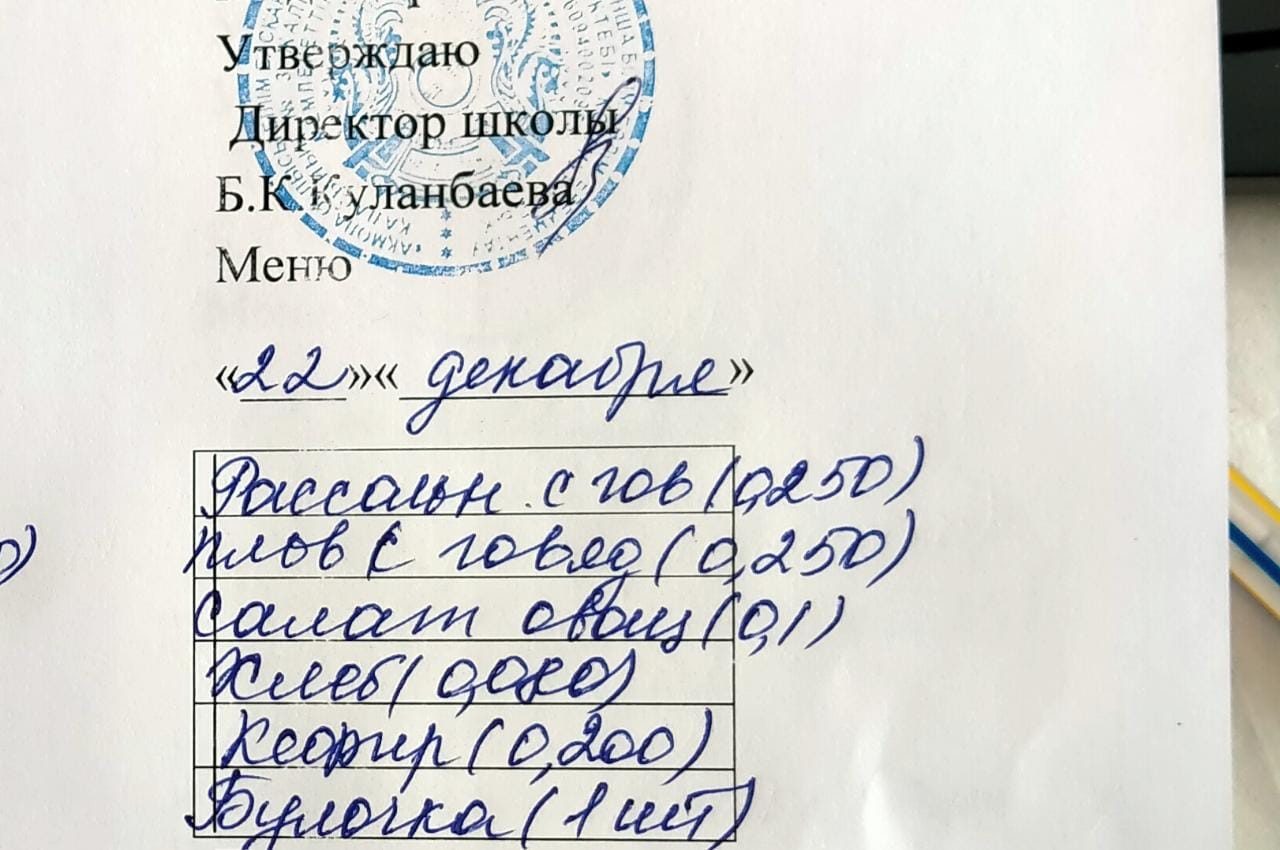 Утверждаю
Директор школы
Б.К.Куланбаева
Меню
«22»«декабря»
Рассольн с гов (0,250)
плов с говяд (0,250)
Салат овощ (0,1)
Хлеб (0,080)
Кефир (0,200)
Булочка (1 шт)